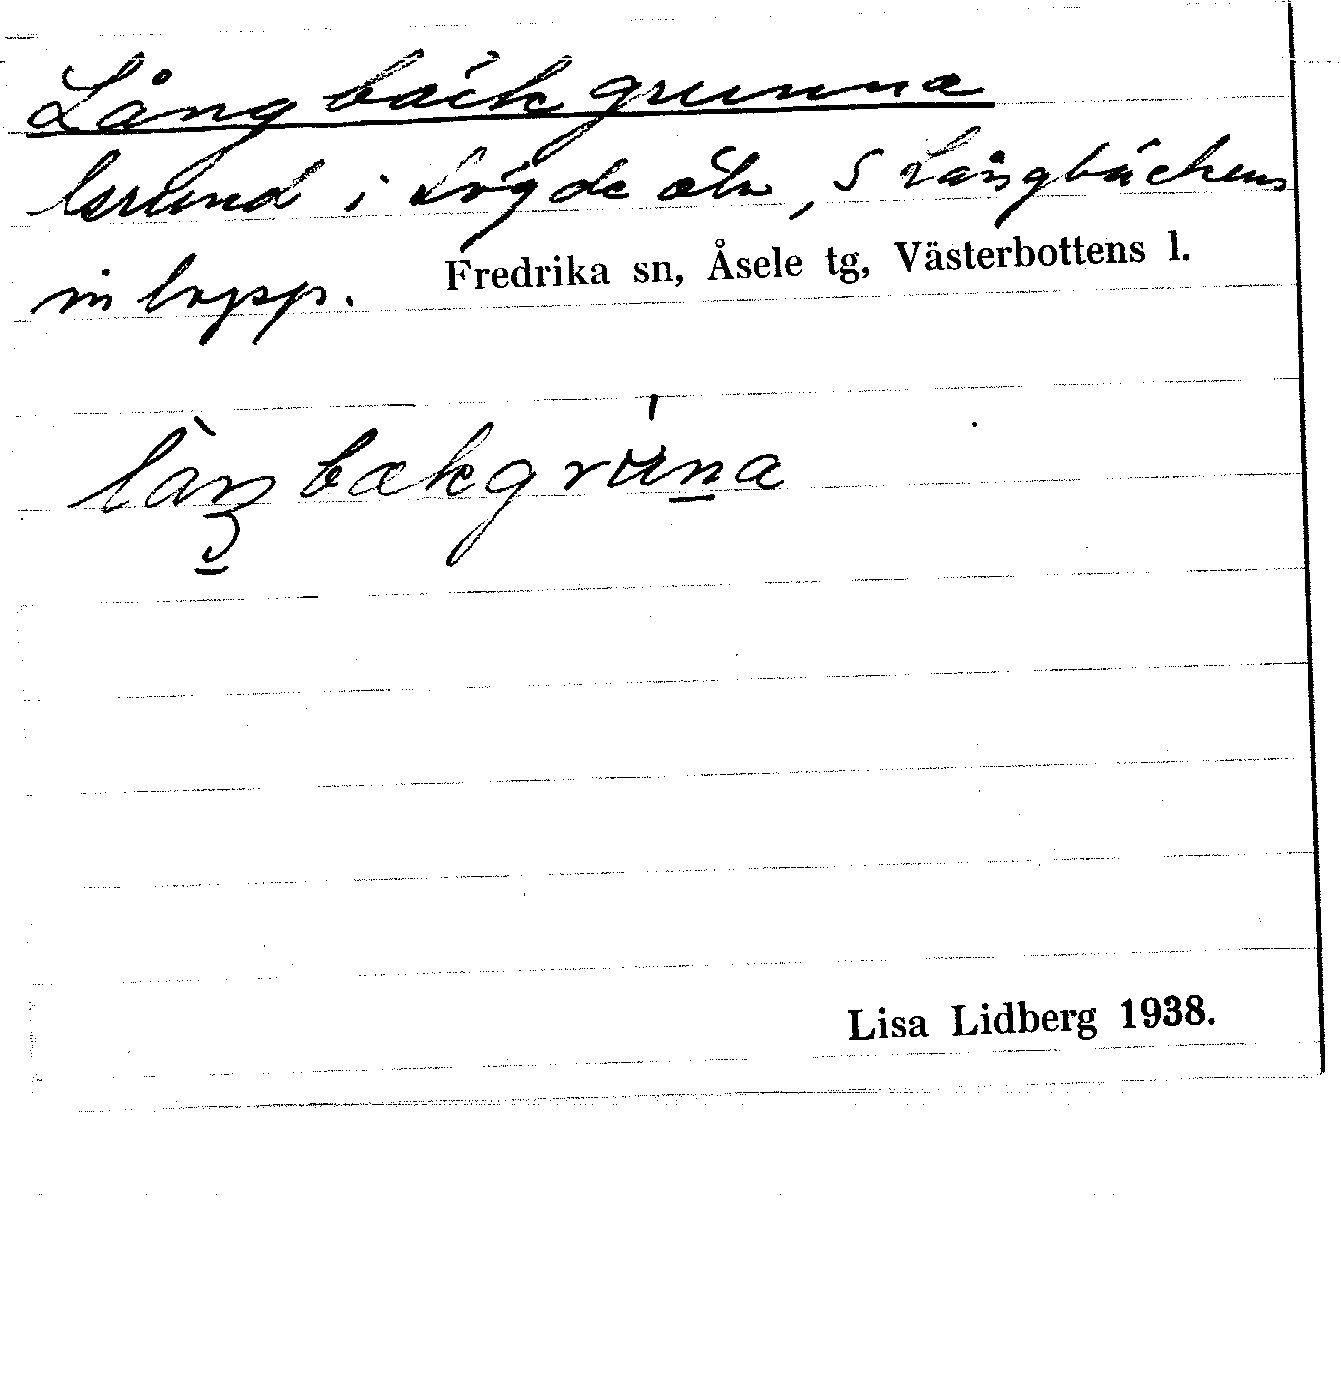 Långbäckgrunna
Grund i Lögde älv, S Långbäckens
inlopp. Fredrika sn, Åsele tg, Västerbottens l.
Lisa Lidberg 1938.